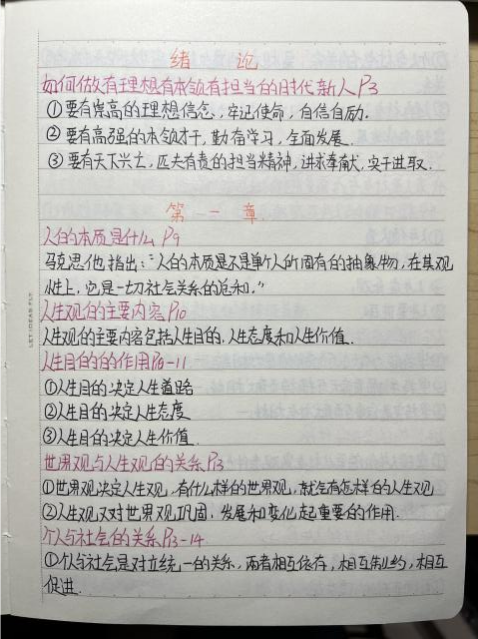 绪 论
如何做有理想有本领有担当的时代新人P3
①要有崇高的理想信念，牢记使命，自信自励．
②要有高强的本领才干，勤奋学习，全面发展．
③要有天下兴亡，匹夫有责的担当精神，讲求奉献，实干进取．
第 一 章．
人的本质是什么 P9
马克思他指出：“人的本质是不是单个人所固有的抽象物，在其现
性上，它是一切社会关系的总和．”
人生观的主要内容P10
人生观的主要内容包括人生目的、人生态度和人生价值．
人生目的的作用P10-11
①人生目的决定人生道路
②人生目的决定人生态度
③人生目的决定人生价值．
世界观与人生观的关系P13
①世界观决定人生观，有什么样的世界观，就会有怎样的人生观
②人生观又对世界观巩固、发展和变化起重要的作用．
个人与社会的关系P13-14
①个人与社会是对立统一的关系，两者相互依存，相互制约，相互
促进．